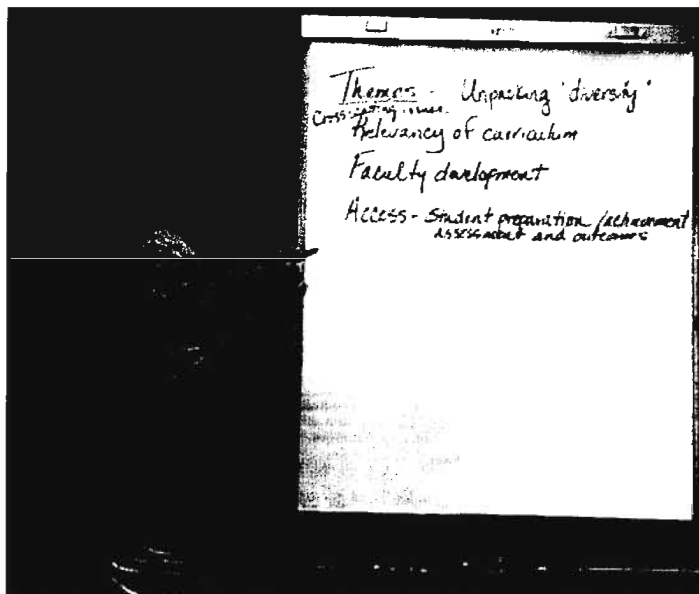 Themes - Unpacking "diversity"
Crosscutting issues
Relevancy of curriculum
Faculty development
Access - Student preparation /achievement
assessment and outcomes